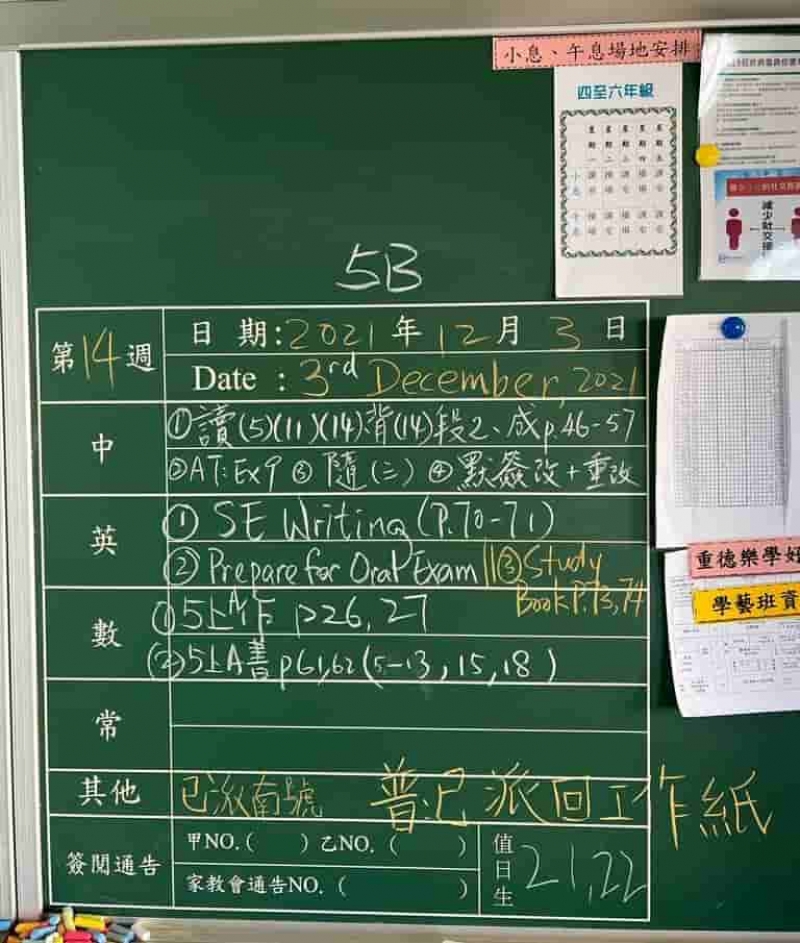 小息、午息場地安排
四至六年級
減少社交接
5B
第14週
日 期:2021年12月3日
Date : 3rd December, 2021
中
①讀(5)(11)(14)背(14)段2、成p.46-57
②AT:Ex9 ③隨(二) ④默簽改+重改
英
① SE Writing (P.70-71)
② Prepare for Oral Exam ||③Study
Book P.73,74
數
①5上A作 P26, 27
②5上A書 p61,62(5-13, 15, 18)
常
其他
普:已派回工作紙
簽閱通告
甲NO.( )乙NO.( )
家教會通告NO.( )
值日生
21, 22
重德樂學好
學藝班資